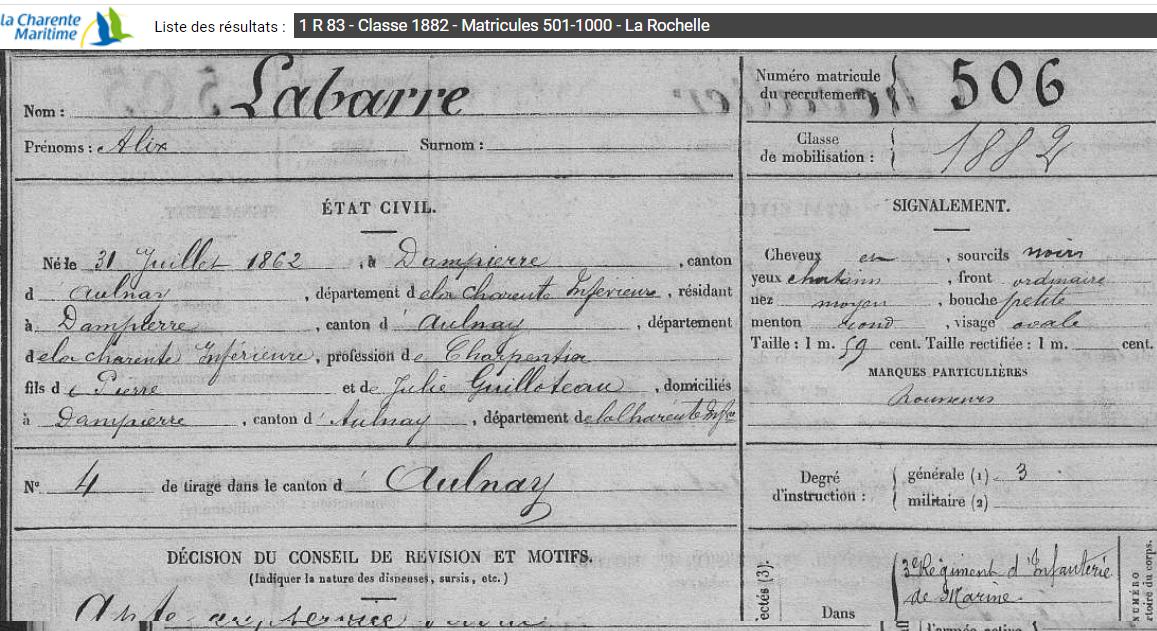 la Charente
Maritime
Liste des résultats : 1 R 83 - Classe 1882 - Matricules 501-1000 - La Rochelle
Nom : Labarre
Prénoms : Alix Surnom :
Numéro matricule
du recrutement : 506
Classe
de mobilisation : 1882
ÉTAT CIVIL.
Né le 31 Juillet 1862, à Dampierre, canton
d'Aulnay, département de la Charente Inférieure, résidant
à Dampierre, canton d'Aulnay, département
de la Charente Inférieure, profession de Charpentier
fils de Pierre et de Julie Guilloteau, domiciliés
à Dampierre, canton d'Aulnay, département de la Charente Infre
SIGNALEMENT.
Cheveux en, sourcils noirs
yeux chatains, front ordinaire
nez moyen, bouche petite
menton rond, visage ovale
Taille : 1 m. 59 cent. Taille rectifiée : 1 m. cent.
MARQUES PARTICULIÈRES
N° 4 de tirage dans le canton d'Aulnay
Degré
d'instruction :
générale (1) 3
militaire (2)
DÉCISION DU CONSEIL DE RÉVISION ET MOTIFS.
(Indiquer la nature des dispenses, sursis, etc.)
ectés (3).
Dans
3e Régiment d'Infanterie
de Marine.
NUMÉRO
rtoire du corps.
l'armée active